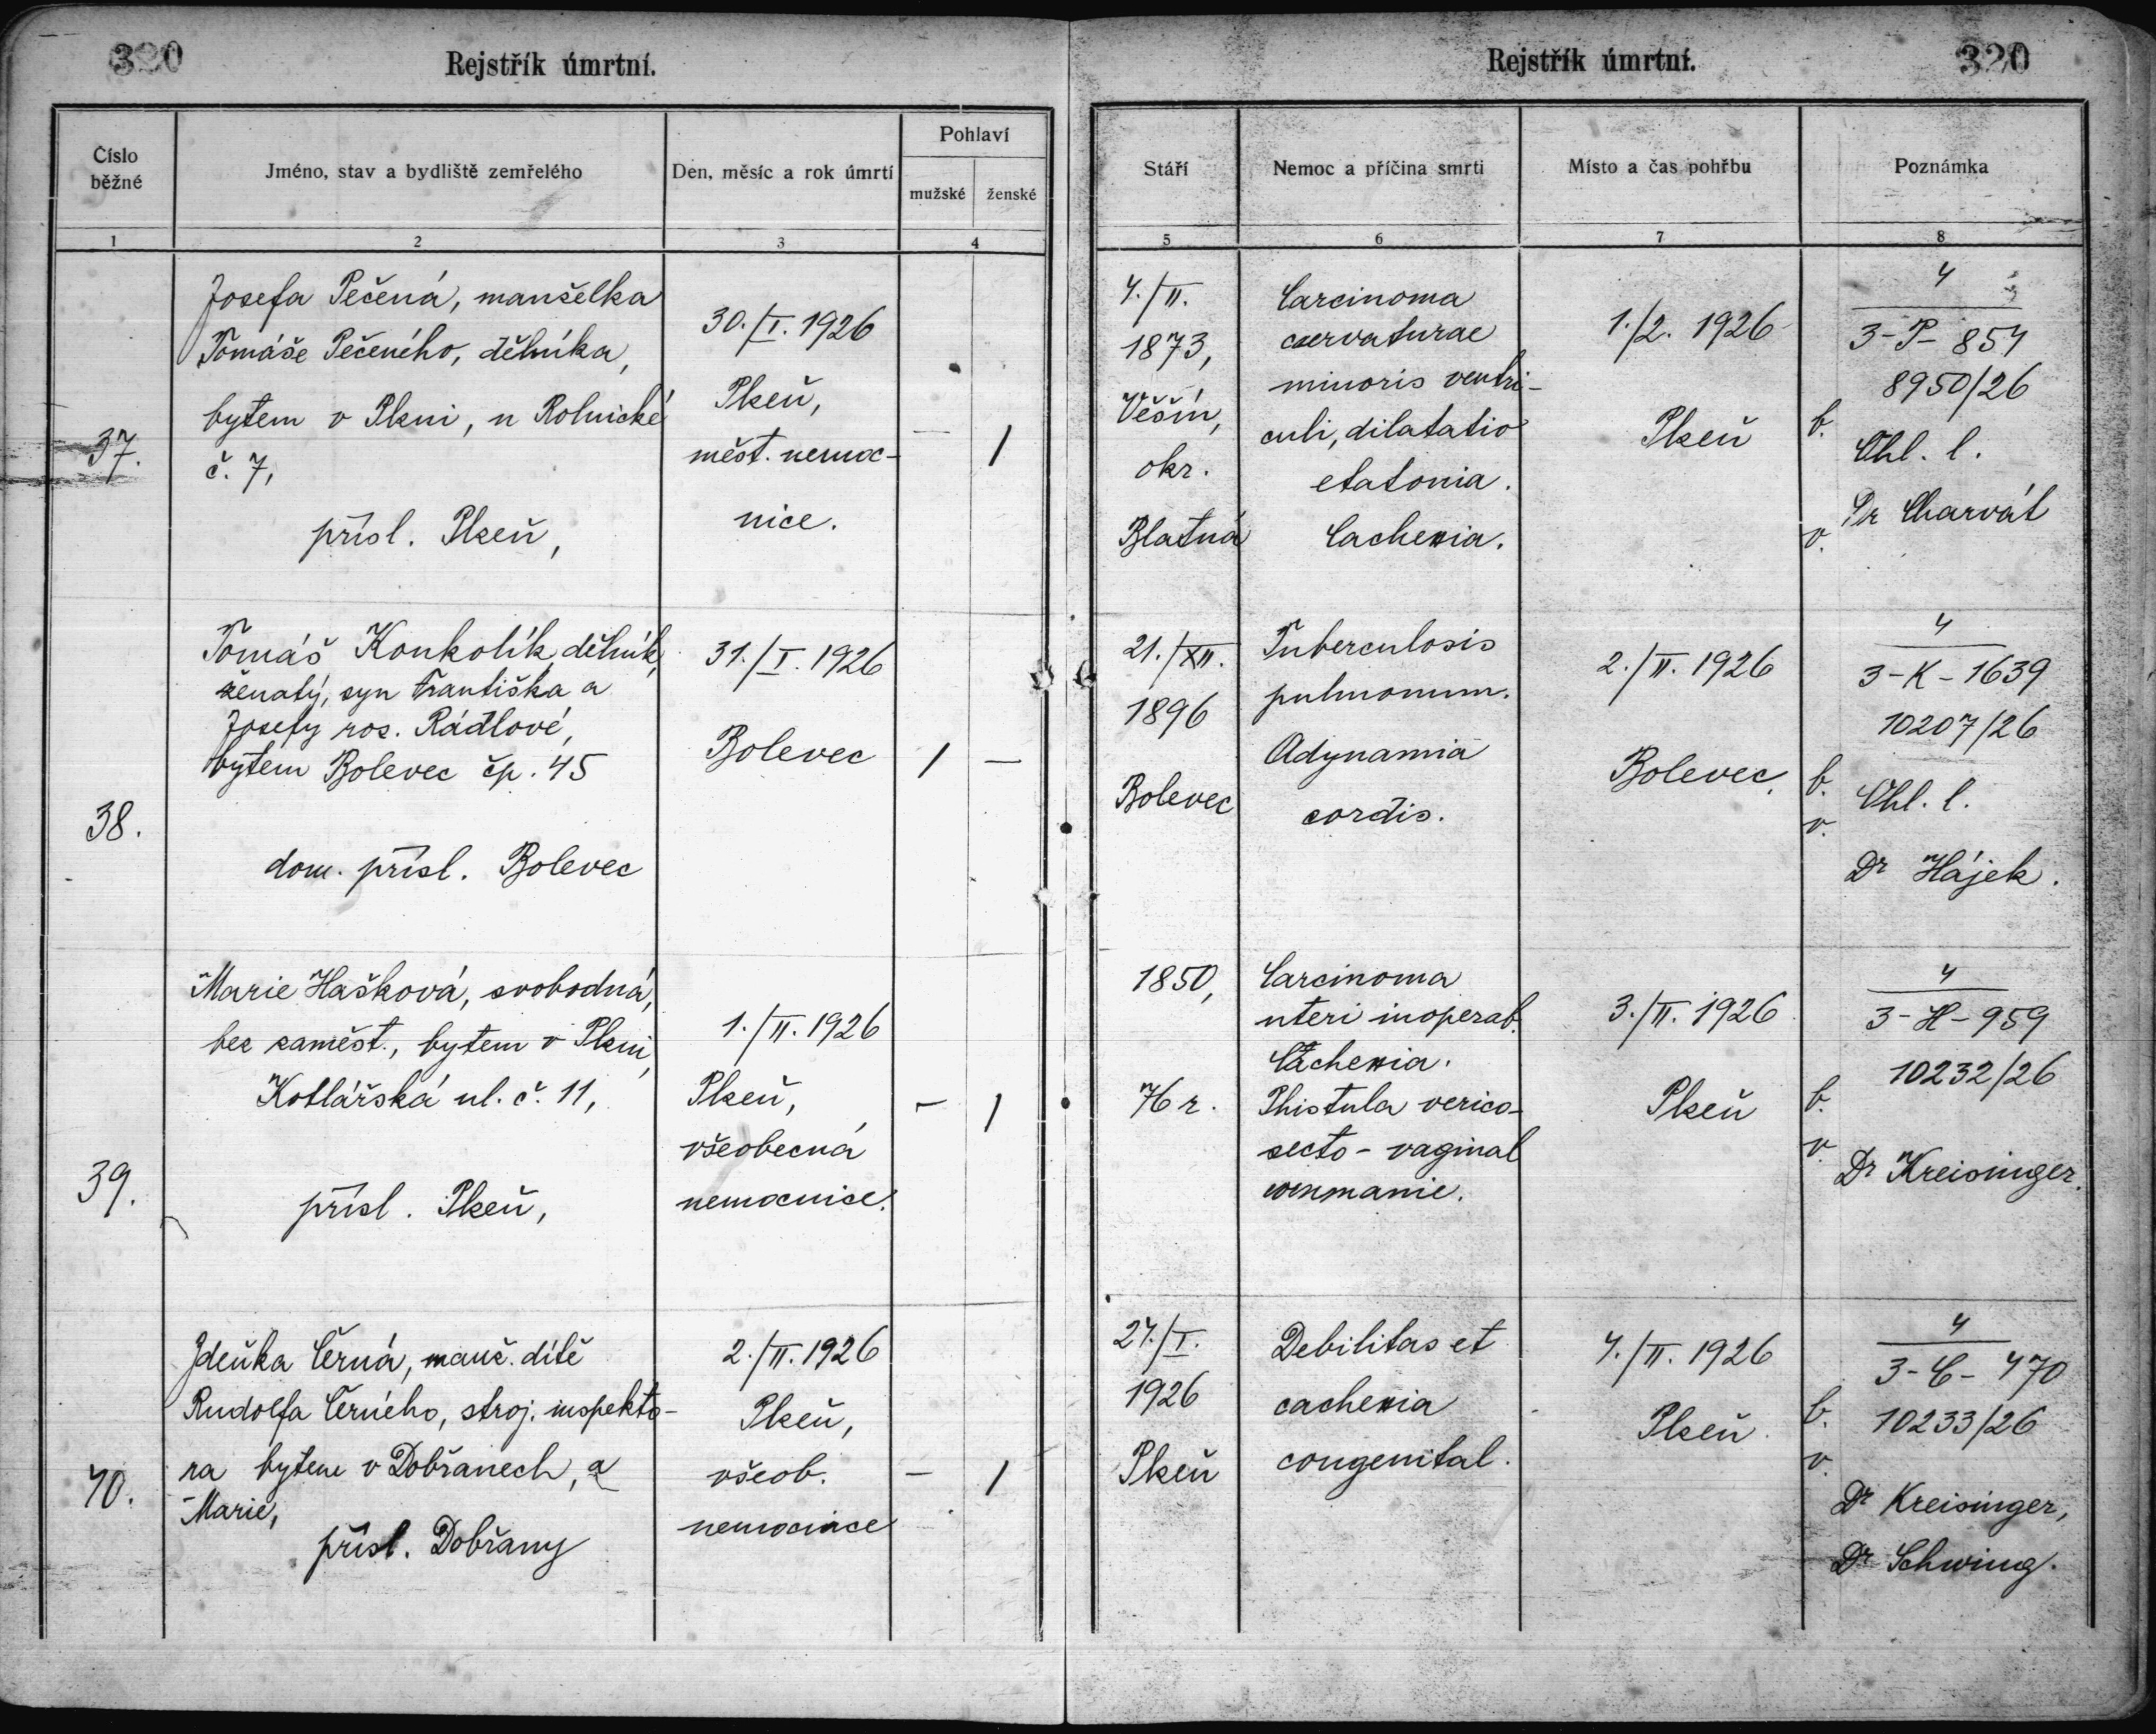 320
Rejstřík úmrtní.
Číslo běžné
Jméno, stav a bydliště zemřelého
Den, měsíc a rok úmrtí
Pohlaví
mužské
ženské
1
2
3
4
37.
Josefa Pečená, manželka
Tomáše Pečeného, dělníka,
bytem v Plzni, u Rolnické
č. 7,
přísl. Plzeň,
30./I. 1926
Plzeň,
měst. nemoc-
nice.
—
1
38.
Tomáš Konkolík, dělník,
ženatý, syn Františka a
Josefy roz. Rádlové,
bytem Bolevec čp. 45
dom. přísl. Bolevec
31./I. 1926
Bolevec
1
—
39.
Marie Hašková, svobodná,
bez zaměst., bytem v Plzni,
Kotlářská ul. č. 11,
přísl. Plzeň,
1./II. 1926
Plzeň,
všeobecná
nemocnice.
—
1
40.
Zdeňka Černá, manž. dítě
Rudolfa Černého, stroj. inspekto-
ra bytem v Dobřanech, a
Marie,
přísl. Dobřany
2./II. 1926
Plzeň,
všeob.
nemocnice
—
1
Rejstřík úmrtní.
320
Stáří
Nemoc a příčina smrti
Místo a čas pohřbu
Poznámka
5
6
7
8
4./II.
1873,
Věšín,
okr.
Blatná
Carcinoma
minoris ventri-
culi, dilatatio
et atonia.
Cachexia.
1./2. 1926
Plzeň
4
3-P-854
8950/26
b.
Ohl. l.
v.
Dr Charvát
21./XII.
1896
Bolevec
Tuberculosis
pulmonum.
Adynamia
cordis.
2./II. 1926
Bolevec.
4
3-K-1639
10207/26
b.
Ohl. l.
v.
Dr Hájek.
1850,
76 r.
Carcinoma
uteri inoperab.
Cachexia.
Phistula verico-
recto-vaginal
3./II. 1926
Plzeň
4
3-H-959
10232/26
b.
v.
Dr Kreisinger.
24./I.
1926
Plzeň
Debilitas et
cachexia
congenital.
4./II. 1926
Plzeň.
4
3-C-470
b.
10233/26
v.
Dr Kreisinger,
Dr Schwing.